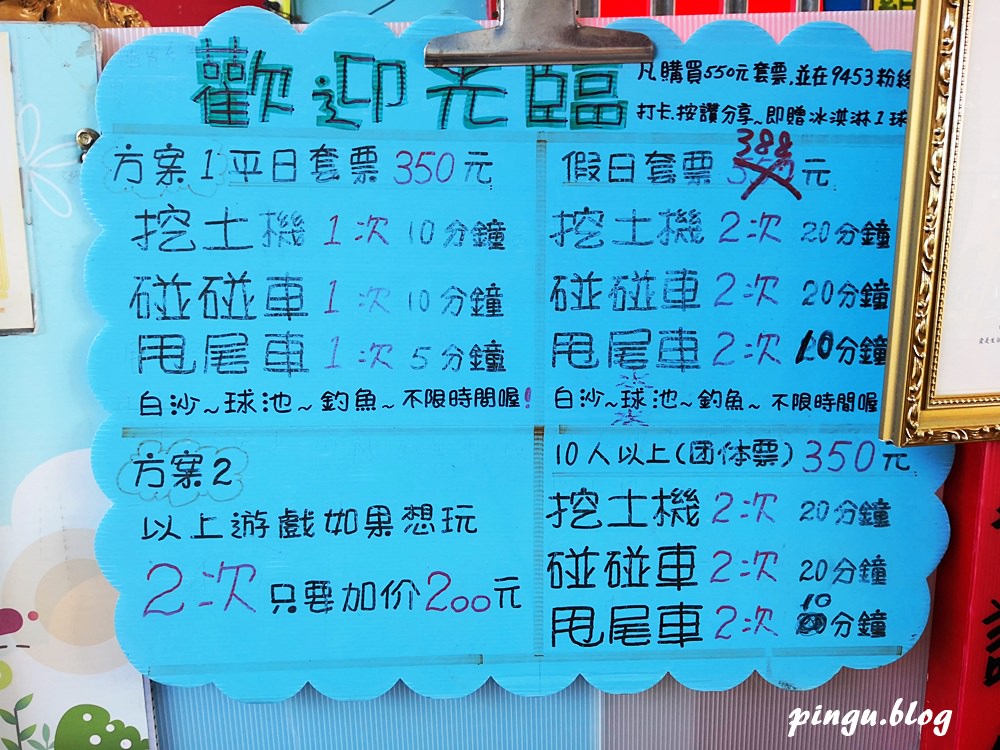 歡迎光臨
凡購買550元套票,並在9453粉絲
打卡.按讚分享~即贈冰淇淋1球
方案1平日套票 350元
挖土機 1次 10分鐘
碰碰車 1次 10分鐘
甩尾車 1次 5分鐘
白沙~球池~釣魚~不限時間喔!
假日套票 388元
挖土機 2次 20分鐘
碰碰車 2次 20分鐘
甩尾車 2次 10分鐘
白沙~球池~釣魚~不限時間喔
方案2
以上遊戲如果想玩
2次 只要加价200元
10人以上(团体票) 350元
挖土機 2次 20分鐘
碰碰車 2次 20分鐘
甩尾車 2次 10分鐘
pingu.blog